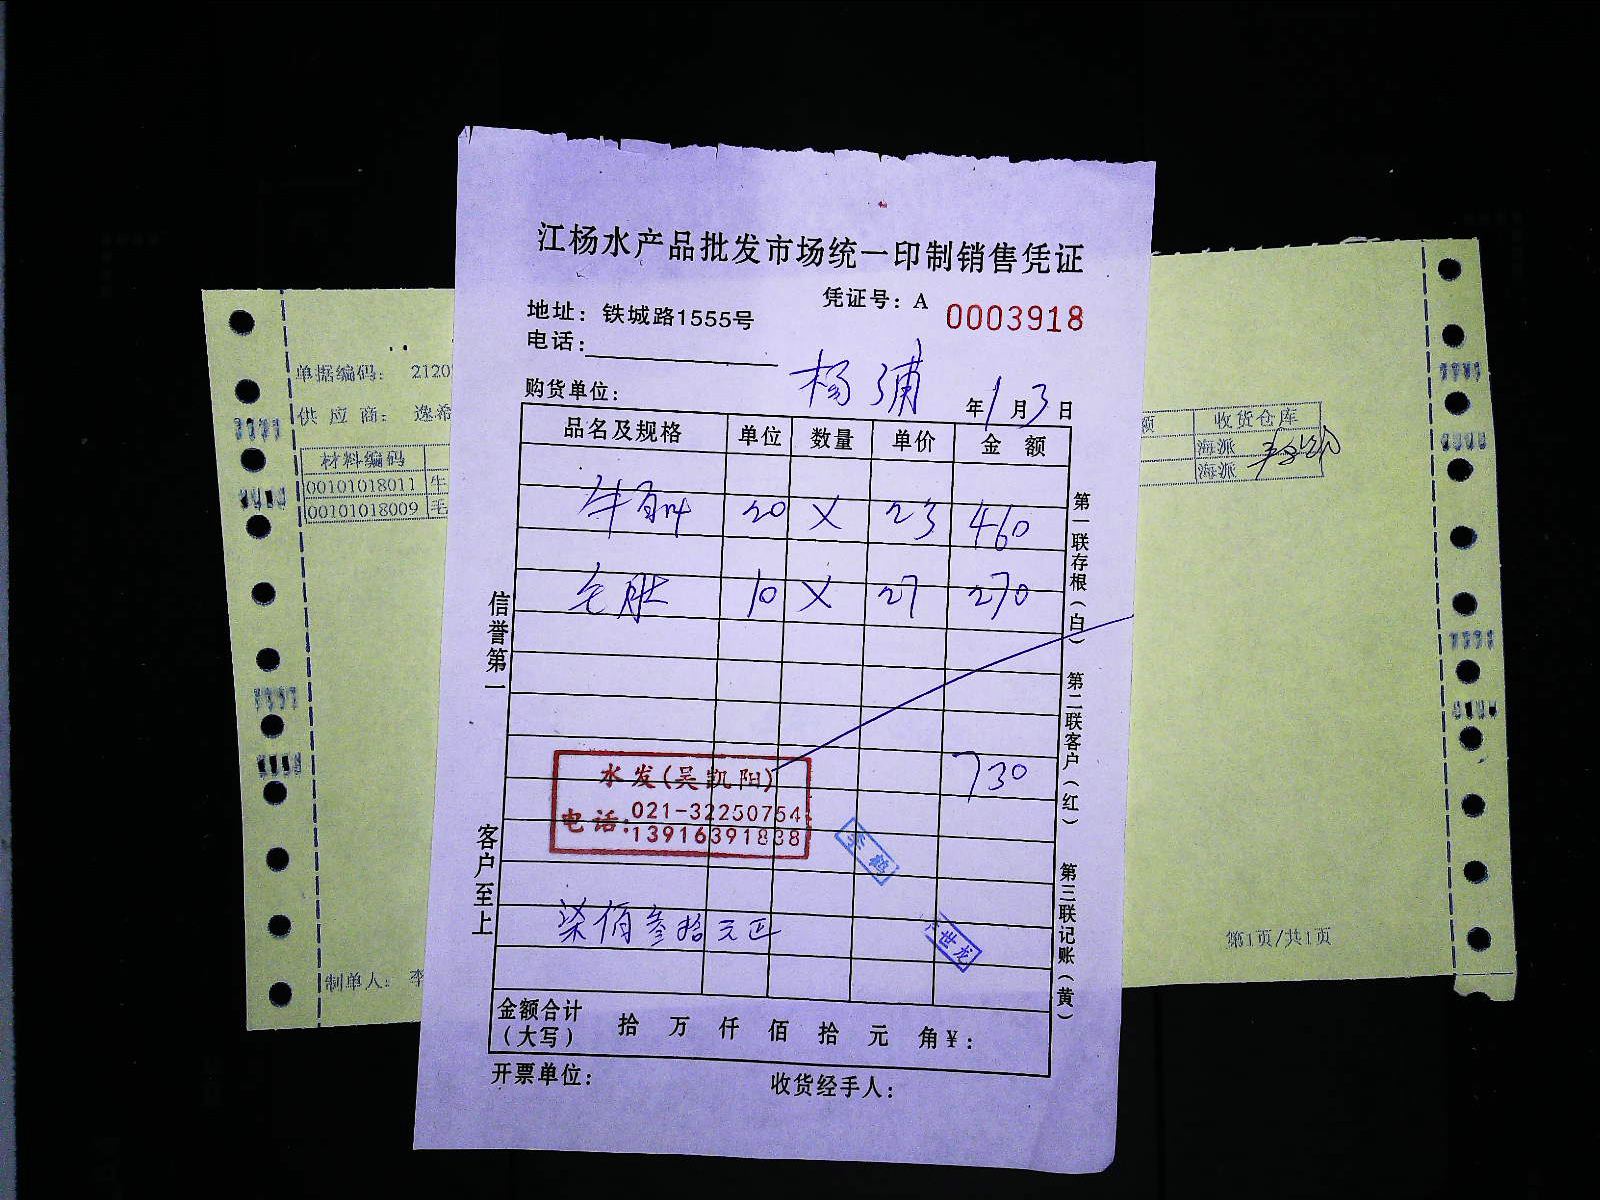 江杨水产品批发市场统一印制销售凭证
凭证号：A 0003918
地址：铁城路1555号
电话：
购货单位： 杨浦 年1月3日
品名及规格 单位 数量 单价 金额
牛百叶 20 X 23 460
毛肚 10 X 27 270
730
水发(吴凯阳)
电话：021-32250754
13916391838
李鹤
世龙
柒佰叁拾元正
金额合计（大写） 拾 万 仟 佰 拾 元 角 ￥：
开票单位： 收货经手人：
信誉第一
客户至上
第一联存根（白）
第二联客户（红）
第三联记账（黄）
单据编码： 2120
供应商： 逸希
材料编码
00101018011 牛
00101018009 毛
制单人： 李
额 收货仓库
海派
海派
第1页/共1页